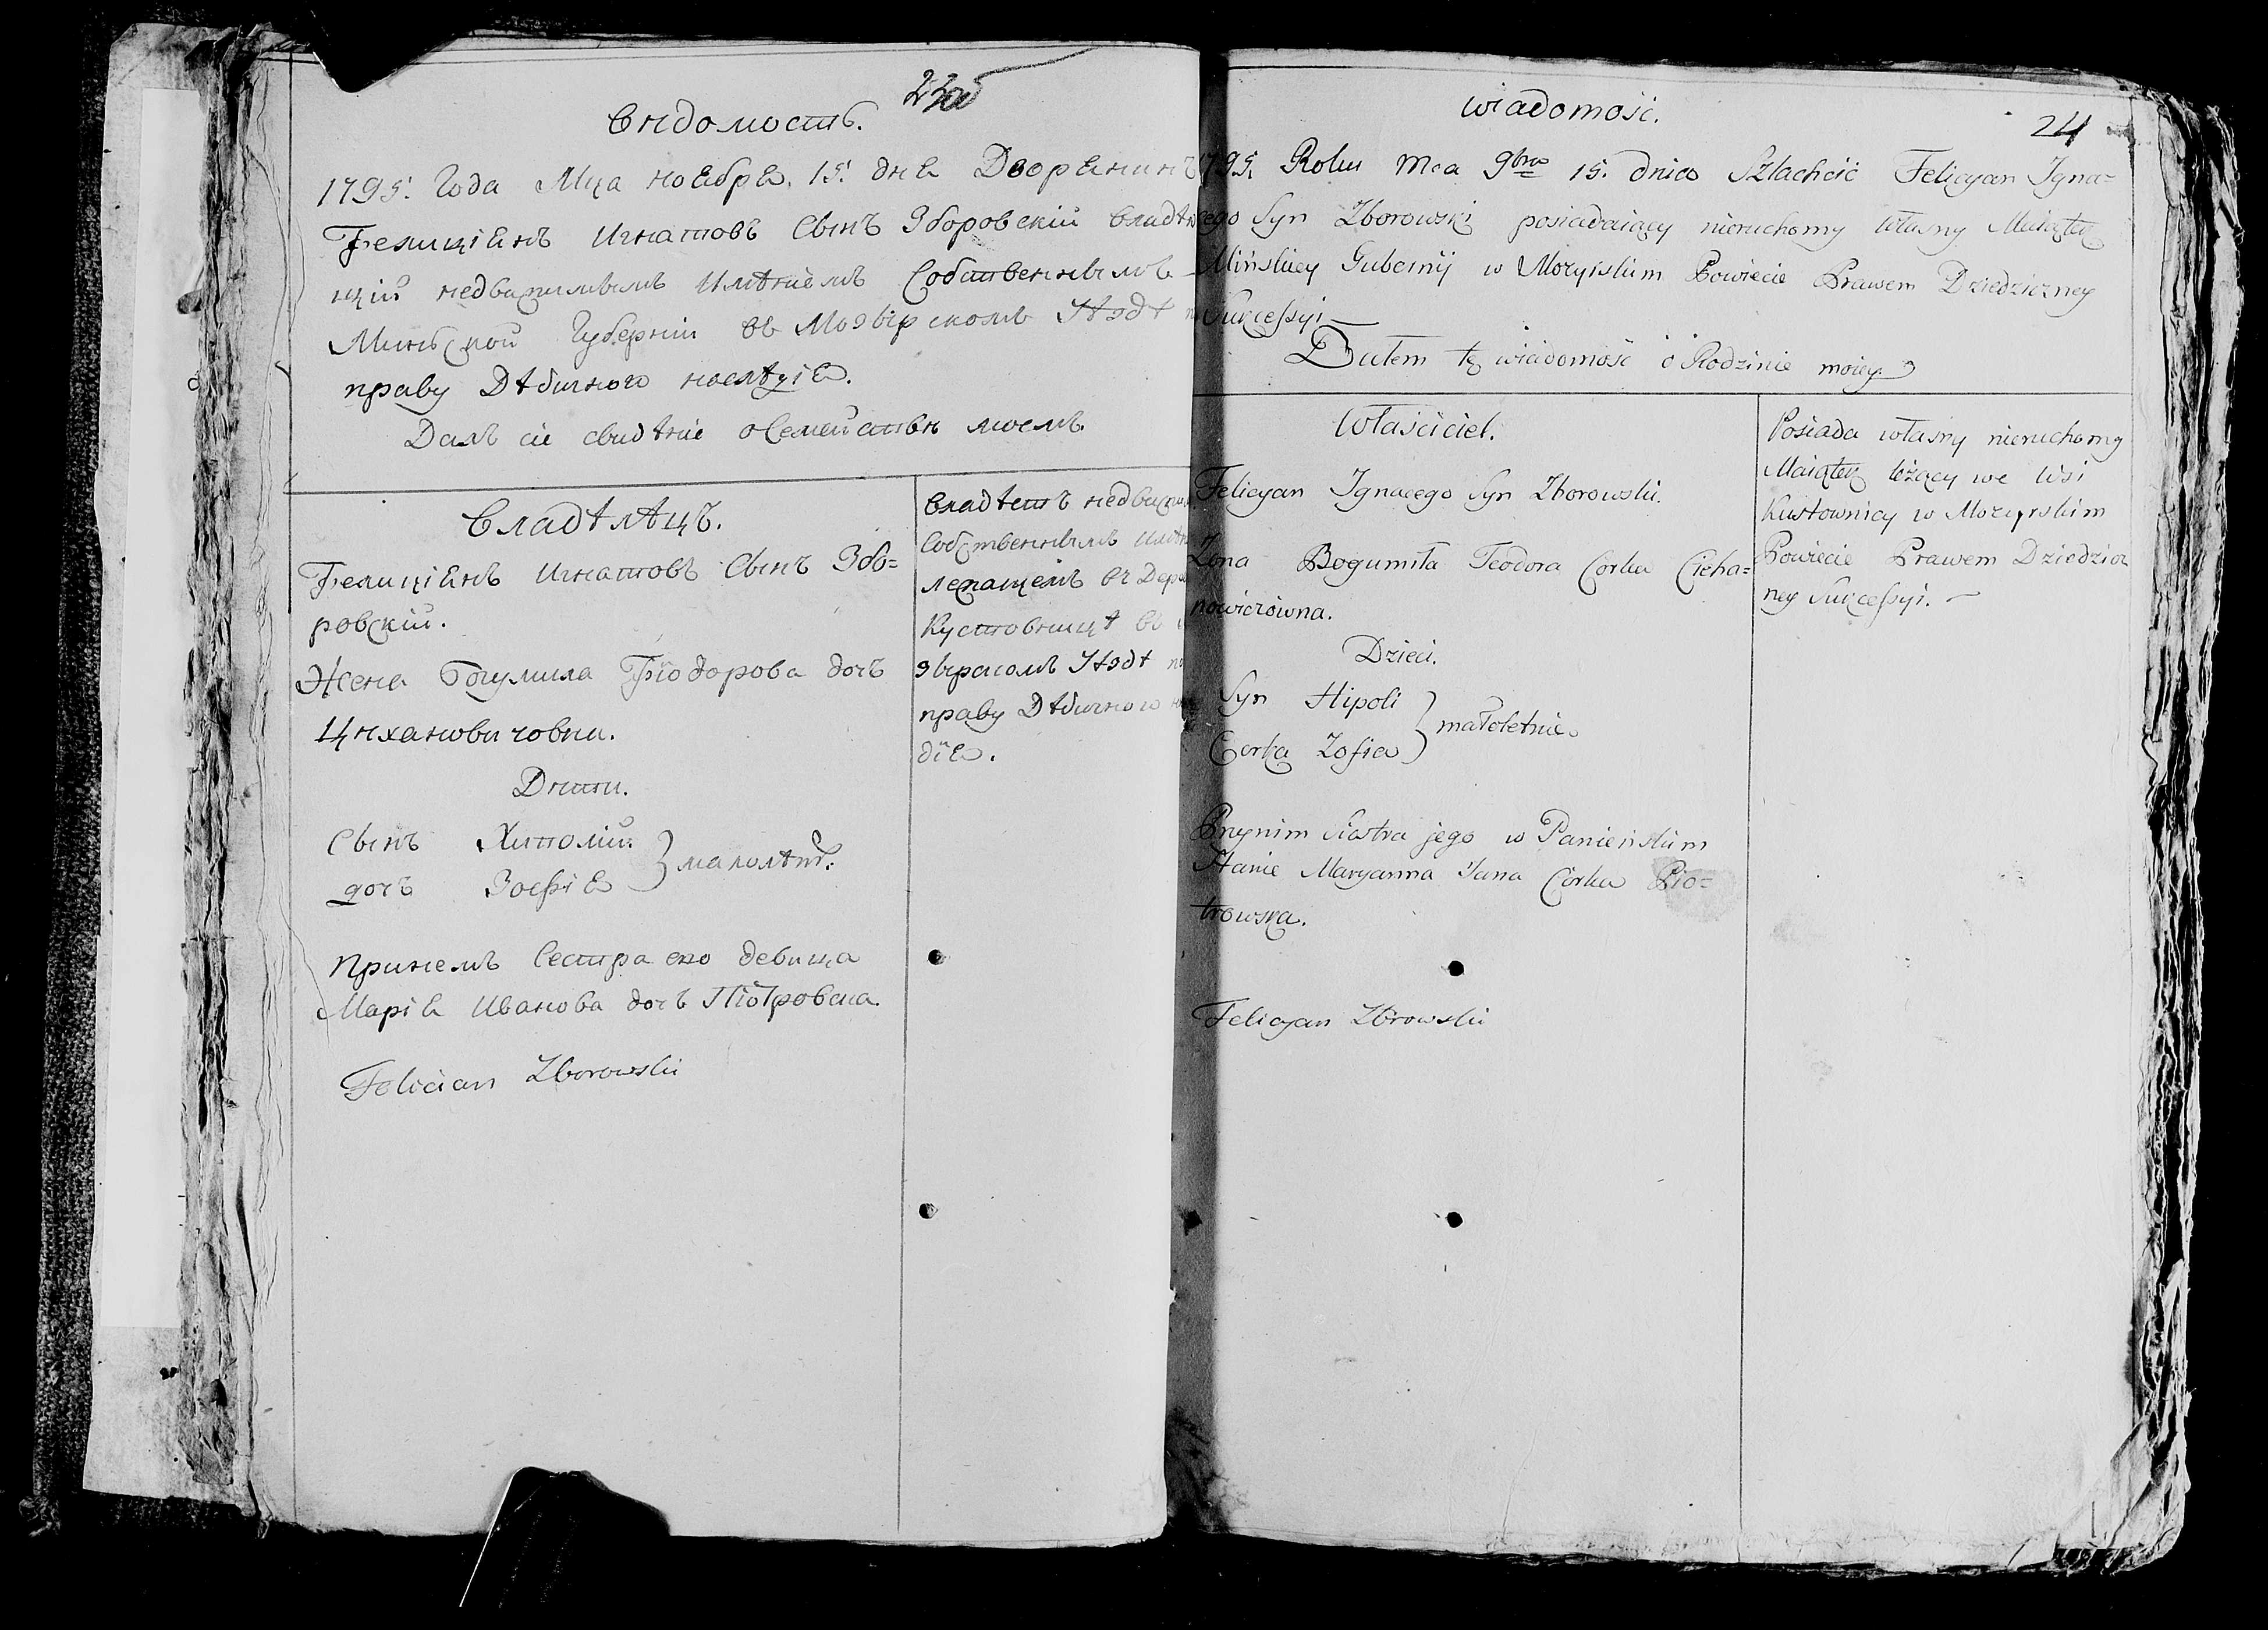 вѣдомость.
1795. Года Мца ноября. 15. дня Дворянинъ
Фелиціянъ Игнатовъ Сынъ Зборовскій владѣю
щій недвижимымъ имѣніемъ Собственнымъ
Минской Губерніи въ Мозырскомъ Уѣздѣ
праву Дѣдичного наслѣдія.
Далъ сіе свидѣніе о Семействѣ моемъ.
Владѣлѣцъ.
Фелиціянъ Игнатовъ Сынъ Збо=
ровскій.
Жена Богумила Фіодорова дочъ
Цѣхановичовни.
Дѣти.
Сынъ Хиполій
дочъ Зофія } малолѣт.
причемъ Сестра его девица
Марія Иванова дочъ Піотровска.
Felician Zborowski
владѣетъ недвижи
Собственнымъ имѣн
лежащемъ въ Дере
Кустовницѣ въ
зырскомъ Уѣздѣ
праву Дѣдичного
дія.
wiadomość.
24
1795. Roku Mca 9bra 15. dnia Szlachcic Felicyan Igna=
cego Syn Zborowski posiadaiący nieruchomy własny Maiątek
Mińskiey Gubernij w Mozyrskim Powiecie Prawem Dziedziczney
Sukcessyi
Dałem tę wiadomość o Rodzinie moiey
Właściciel.
Felicyan Ignacego Syn Zborowski.
Zona Bogumiła Teodora Corka Cieha=
nowiczówna.
Dzieci.
Syn Hipoli
Corka Zofia } małoletnie
Przynim Siostra jego w Panieńskim
Stanie Maryanna Jana Córka Pio=
trowska.
Felicyan Zbrowski
Posiada własny nieruchomy
Maiątek leżący we Wsi
Kustownicy w Mozyrskim
Powiecie Prawem Dziedzicz
ney Sukcessyi.